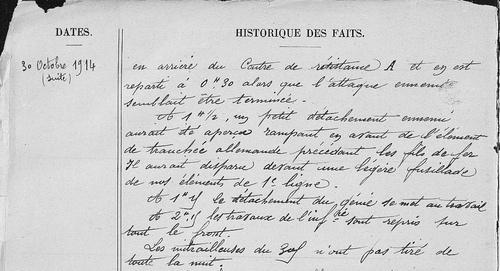 DATES.
HISTORIQUE DES FAITS.
30 Octobre 1914
(suite)
en arrière du Centre de résistance A et en est
reparti à 0h30 alors que l'attaque ennemie
semblait être terminée.
A 1h1/2, un petit détachement ennemi
aurait été aperçu rampant en avant de l'élément
de tranchée allemande précédant les fils de fer
Il aurait disparu devant une légère fusillade
de nos éléments de 1e ligne.
A 1h le détachement du génie se met au travail
A 2h les travaux de l'infrie sont repris sur
tout le front.
Les mitrailleuses du n'ont pas tiré de
toute la nuit.